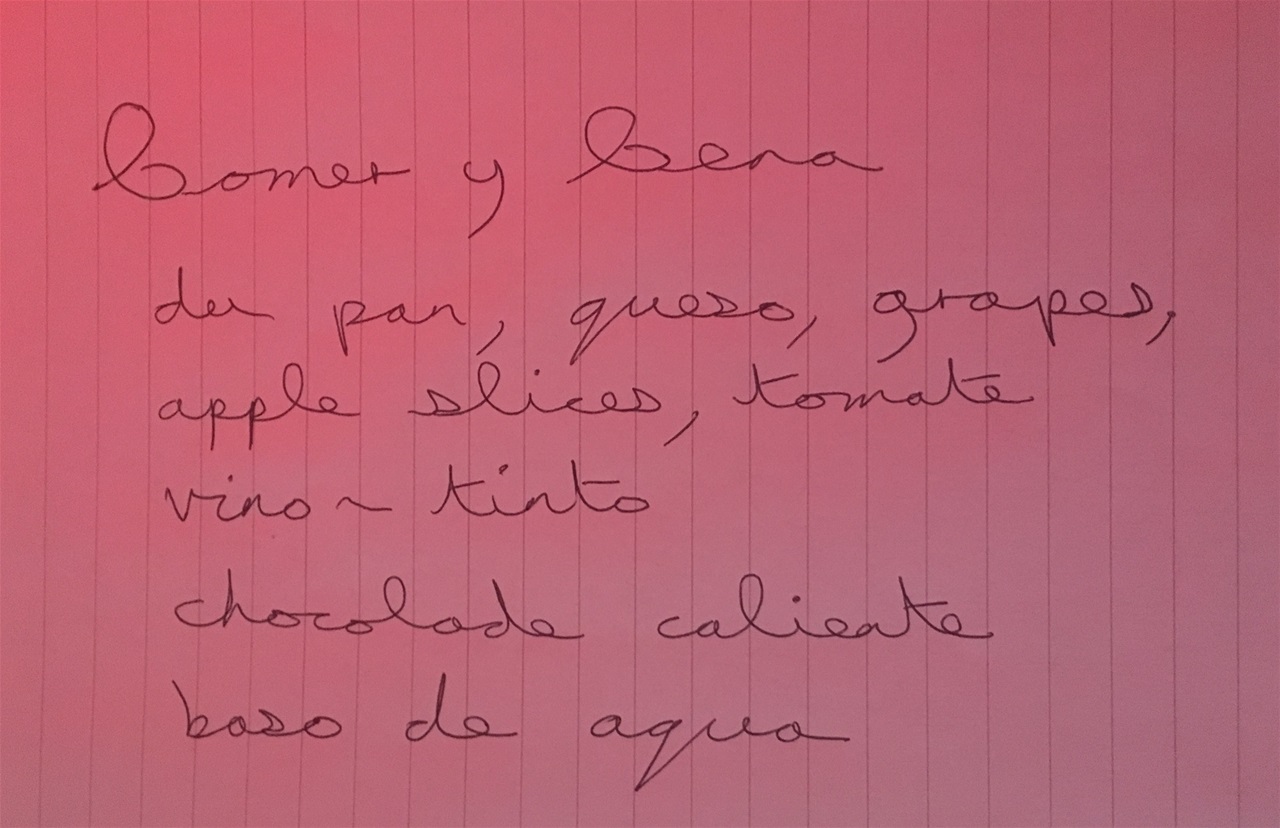 Comer y Cena
der pan, queso, grapes,
apple slices, tomate
vino ~ tinto
chocolade caliente
baso de agua